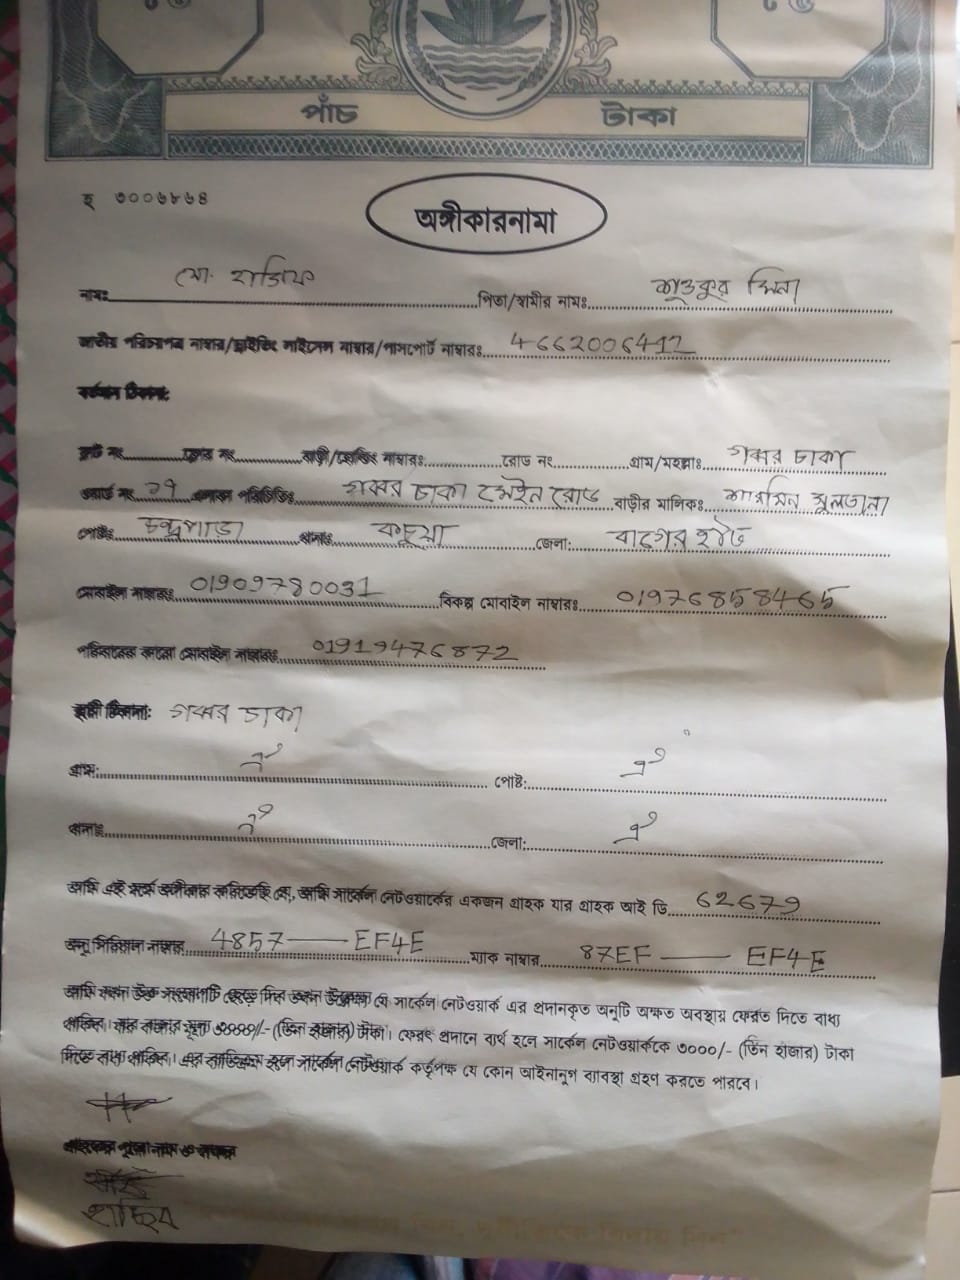 পাঁচ টাকা
হ ৩০০৬৮৬৪
অঙ্গীকারনামা
নামঃ মো. পিতা/স্বামীর নামঃ
জাতীয় পরিচয়পত্র নাম্বার/ড্রাইভিং লাইসেন্স নাম্বার/পাসপোর্ট নাম্বারঃ 4662006412
বর্তমান ঠিকানা:
ফ্লাট নং ফ্লোর নং বাড়ী/হোল্ডিং নাম্বারঃ রোড নং গ্রাম/মহল্লাঃ গব্বর ঢাকা
ওয়ার্ড নং ০৭ এলাকা পরিচিতিঃ গব্বর ঢাকা মেইন রোড বাড়ীর মালিকঃ শারমিন সুলতানা
পোষ্টঃ চন্দ্রপাড়া থানাঃ কচুয়া জেলা: বাগেরহাট
মোবাইল নাম্বারঃ 01909780031 বিকল্প মোবাইল নাম্বারঃ 01976858465
পরিবারের কারো মোবাইল নাম্বারঃ 01919476872
স্থায়ী ঠিকানা: গব্বর ঢাকা
গ্রাম: ঐ পোষ্ট: ঐ
থানাঃ ঐ জেলা: ঐ
আমি এই মর্মে অঙ্গীকার করিতেছি যে, আমি সার্কেল নেটওয়ার্কের একজন গ্রাহক যার গ্রাহক আই ডি 62679
অনু সিরিয়াল নাম্বার 4857 — EF4E ম্যাক নাম্বার 87EF — EF4E
আমি যখন উক্ত সংযোগটি ছেড়ে দিব তখন যে সার্কেল নেটওয়ার্ক এর প্রদানকৃত অনুটি অক্ষত অবস্থায় ফেরত দিতে বাধ্য
থাকিব। যার বাজার মূল্য ৩০০০/- (তিন হাজার) টাকা। ফেরৎ প্রদানে ব্যর্থ হলে সার্কেল নেটওয়ার্ককে ৩০০০/- (তিন হাজার) টাকা
দিতে বাধ্য থাকিব। এর ব্যতিক্রম হলে সার্কেল নেটওয়ার্ক কর্তৃপক্ষ যে কোন আইনানুগ ব্যাবস্থা গ্রহণ করতে পারবে।